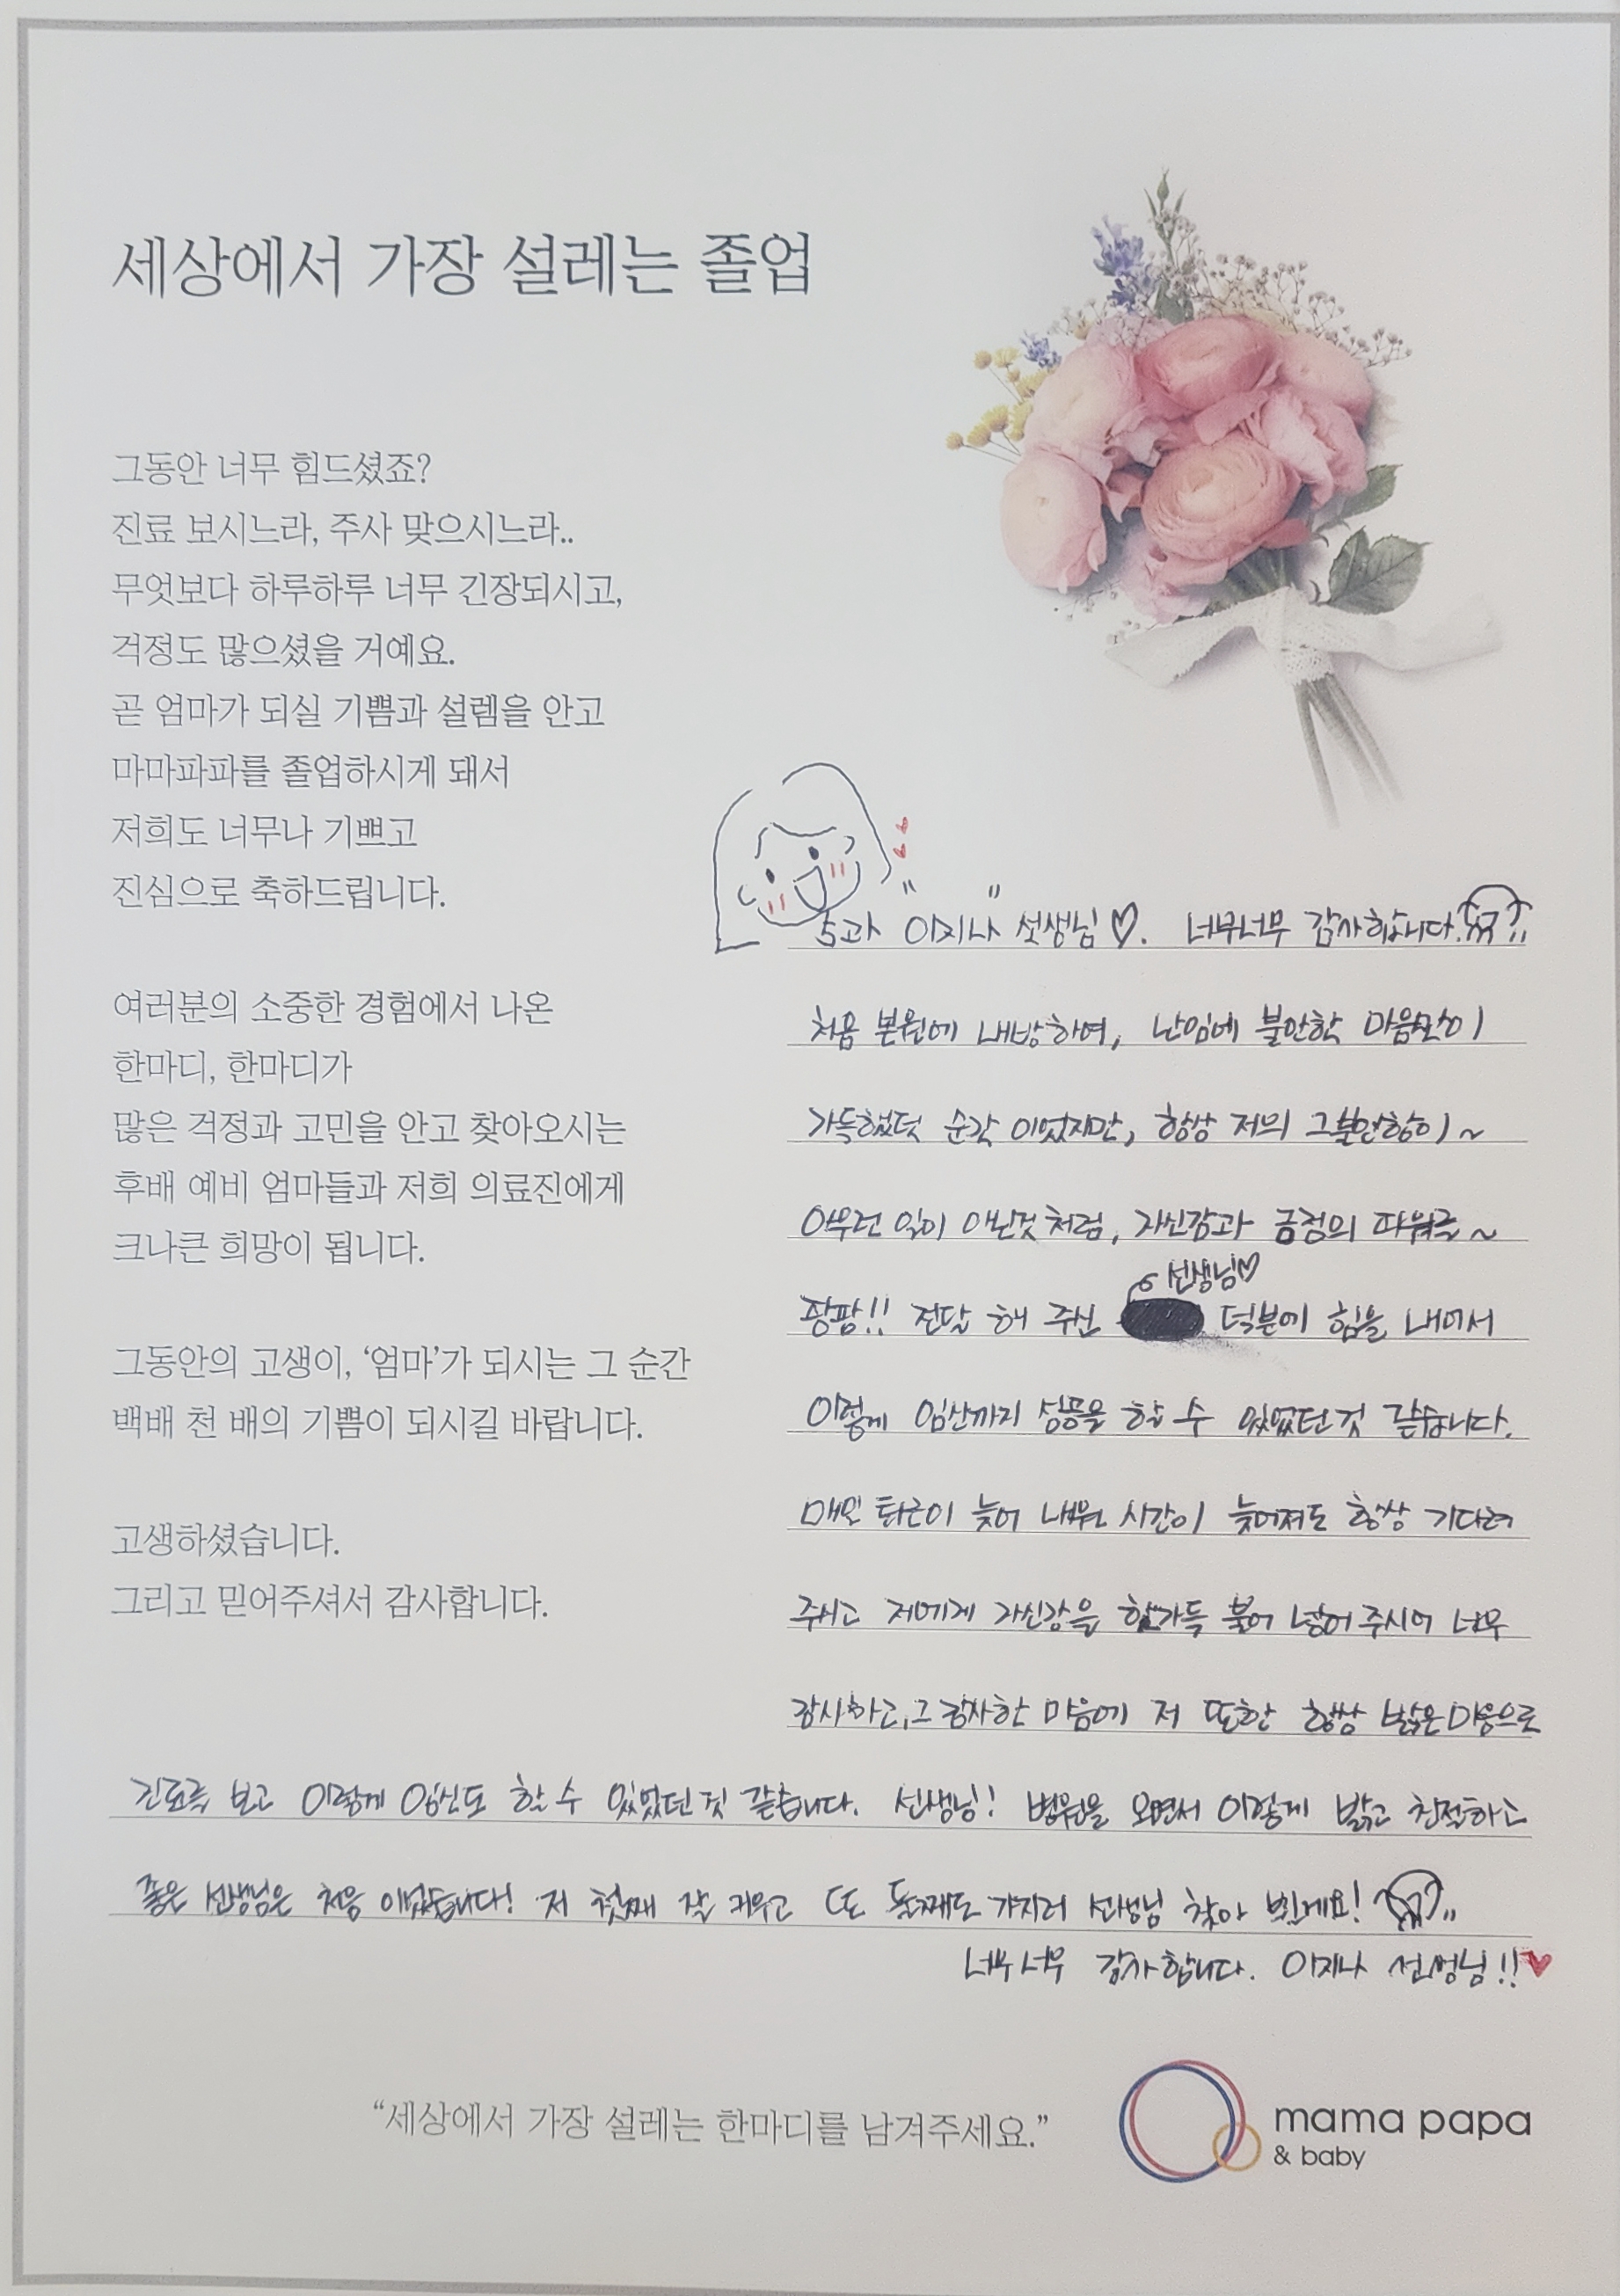 세상에서 가장 설레는 졸업
그동안 너무 힘드셨죠?
진료 보시느라, 주사 맞으시느라..
무엇보다 하루하루 너무 긴장되시고,
걱정도 많으셨을 거예요.
곧 엄마가 되실 기쁨과 설렘을 안고
마마파파를 졸업하시게 돼서
저희도 너무나 기쁘고
진심으로 축하드립니다.
여러분의 소중한 경험에서 나온
한마디, 한마디가
많은 걱정과 고민을 안고 찾아오시는
후배 예비 엄마들과 저희 의료진에게
크나큰 희망이 됩니다.
그동안의 고생이, ‘엄마’가 되시는 그 순간
백배 천 배의 기쁨이 되시길 바랍니다.
고생하셨습니다.
그리고 믿어주셔서 감사합니다.
5과 "이지나" 선생님♡. 너무너무 감사합니다.
처음 본원에 내방하여, 난임에 불안한 마음만이
가득했던 순간 이었지만, 항상 저의 그불안함이~
아무런 일이 아닌것 처럼, 자신감과 긍정의 파워를~
팡팡!! 전달 해 주신 선생님♡ 덕분에 힘을 내어서
이렇게 임신까지 성공을 할 수 있었던 것 같습니다.
매일 퇴근이 늦어 내원 시간이 늦어져도 항상 기다려
주시고 저에게 자신감을 한가득 불어 넣어 주시어 너무
감사하고, 그 감사한 마음에 저 또한 항상 밝은 마음으로
진료를 보고 이렇게 임신도 할 수 있었던 것 같습니다. 선생님! 병원을 오면서 이렇게 밝고 친절하고
좋은 선생님은 처음 이었습니다! 저 첫째 잘 키우고 또 둘째도 가지러 선생님 찾아 뵐게요!
너무 너무 감사합니다. 이지나 선생님!!♥
“세상에서 가장 설레는 한마디를 남겨주세요.”
mama papa
& baby